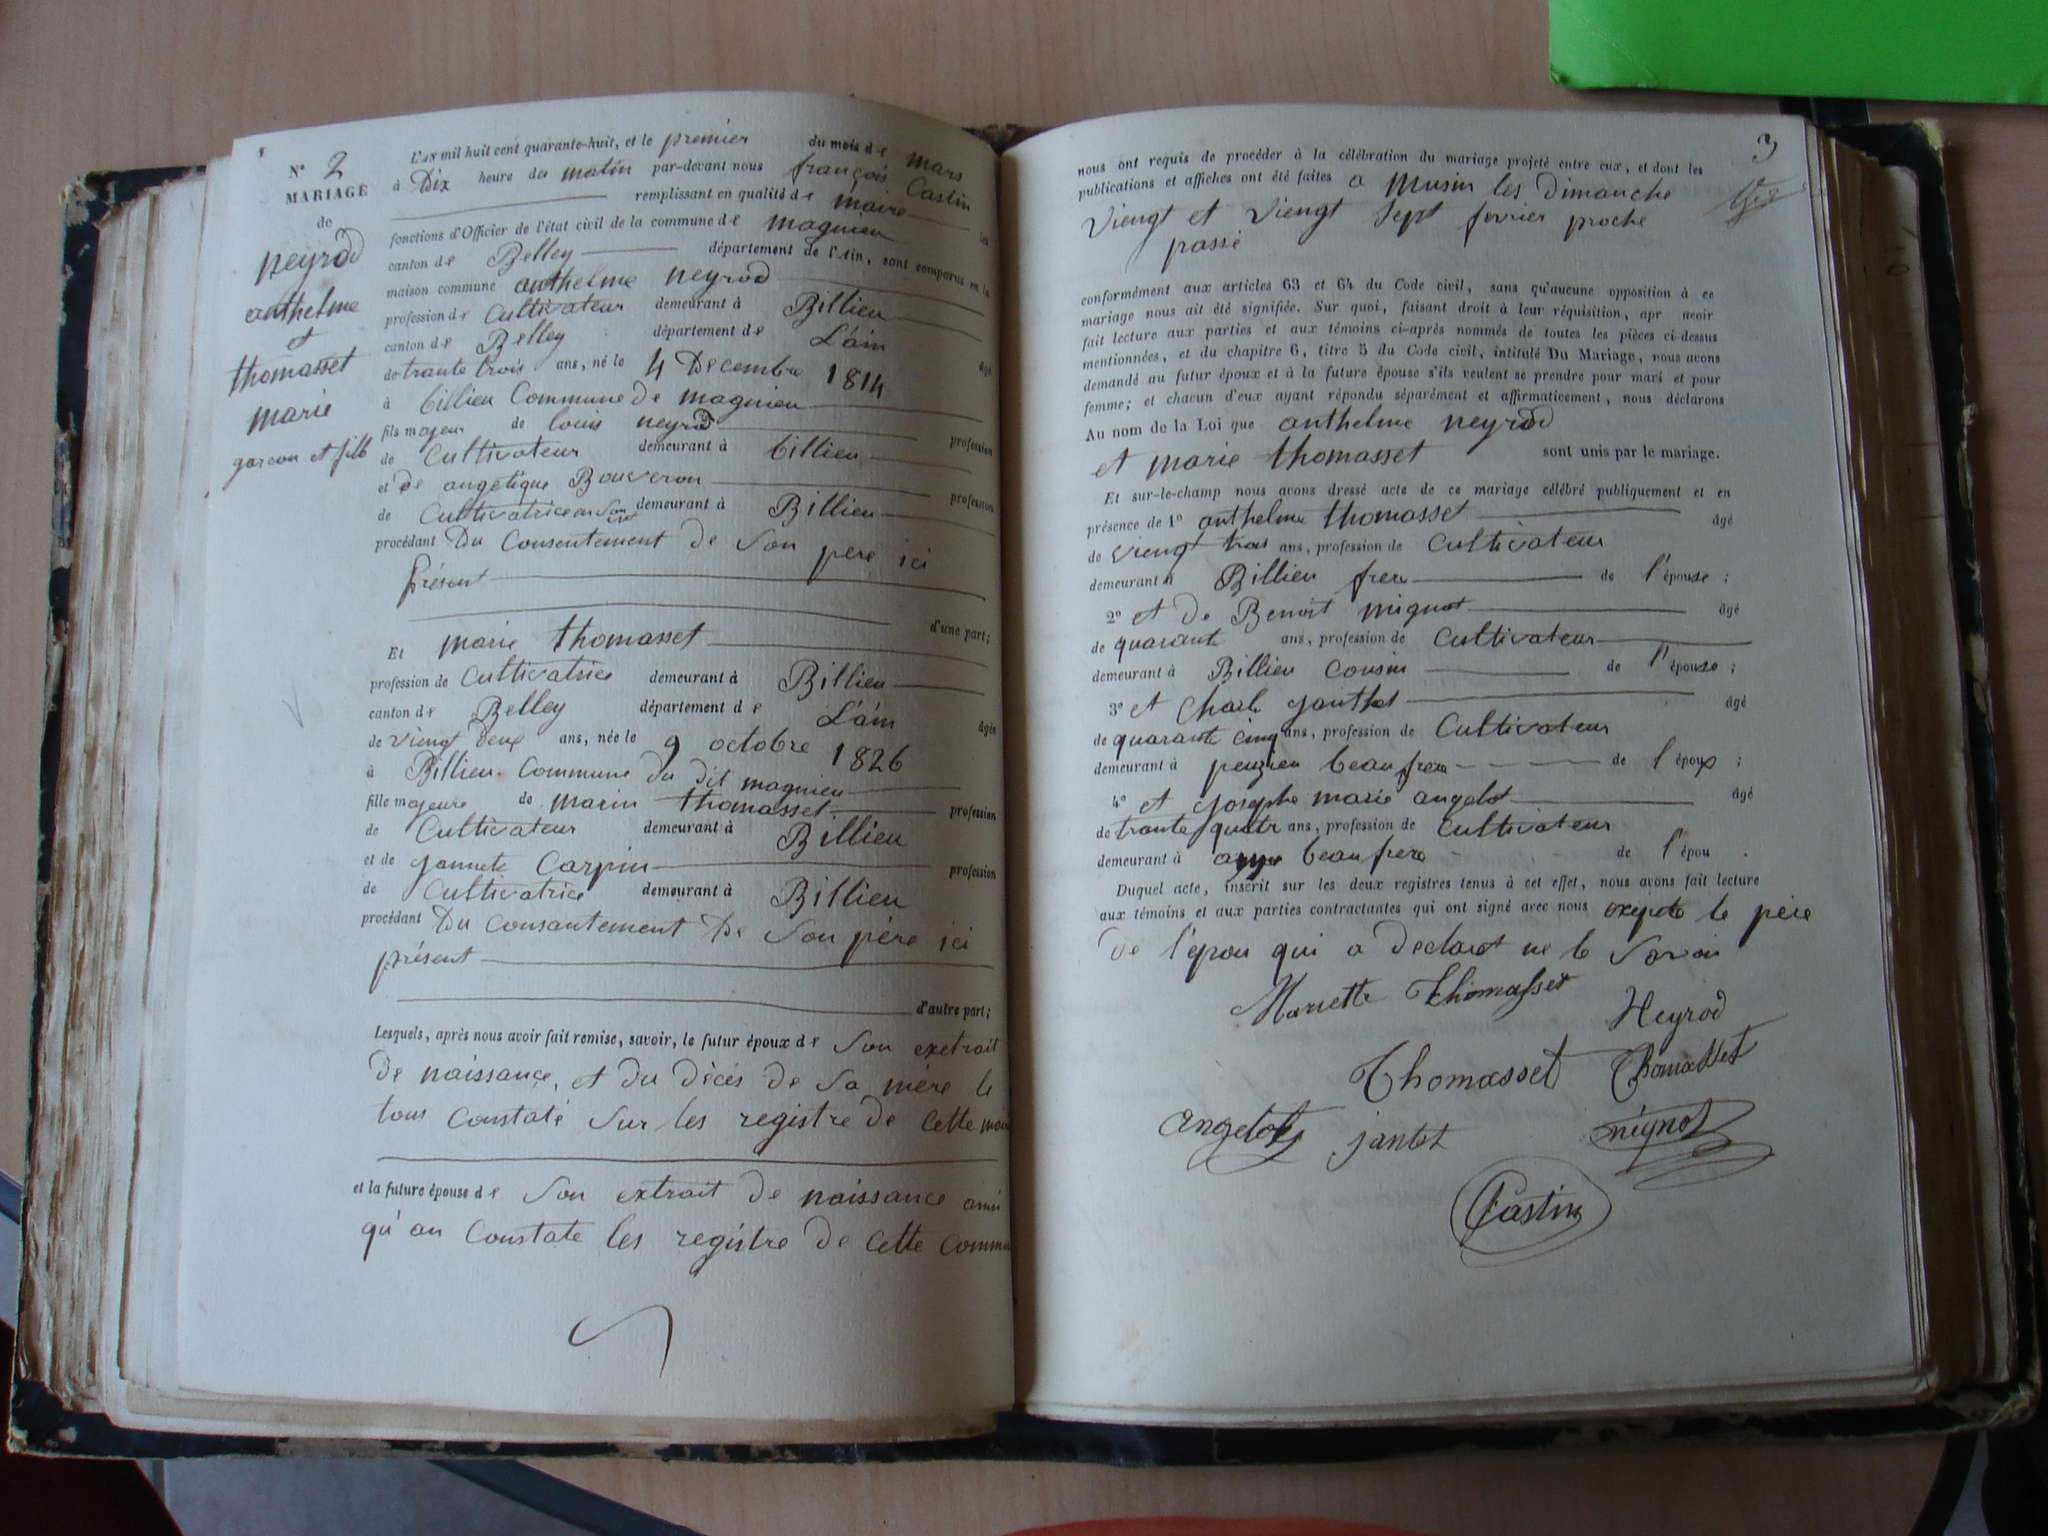 N° 2
MARIAGE
de
neyrod
anthelme
et
thomasset
marie
garcon et fille
L'AN mil huit cent quarante-huit, et le premier du mois de mars
à Dix heure du matin par-devant nous françois Castin
remplissant en qualité de maire les
fonctions d'Officier de l'état civil de la commune de magnieu
canton de Belley département de l'Ain, sont comparus en la
maison commune anthelme neyrod
profession de Cultivateur demeurant à Billieu
canton de Belley département de L'ain âgé
de trante trois ans, né le 4 Decembre 1814
à billieu Commune De magnieu
fils majeur de louis neyrod profession
de Cultivateur demeurant à billieu
et de angelique Bouveron profession
de Cultivatrice demeurant à Billieu
procédant Du Consentement De Son pere ici
présent
d'une part;
Et marie thomasset
profession de Cultivatrice demeurant à Billieu
canton de Belley département de L'ain âgée
de Viengt deux ans, née le 9 octobre 1826
à Billieu Commune du dit magnieu
fille majeure de marin thomasset profession
de Cultivateur demeurant à Billieu
et de jannete Carpin profession
de Cultivatrice demeurant à Billieu
procédant Du Consantement De Son père ici
présent
d'autre part;
Lesquels, après nous avoir fait remise, savoir, le futur époux de Son exetrait
De naissance, et du dècés de Sa mère le
tous Constaté Sur les registre de Cette
et la future épouse de Son extrait de naissance
qu'au Constate les registre de Cette
3
nous ont requis de procéder à la célébration du mariage projeté entre eux, et dont les
publications et affiches ont été faites a Musin les Dimanche
Viengt et Viengt Sept fevrier proche
passé
conformément aux articles 63 et 64 du Code civil, sans qu'aucune opposition à ce
mariage nous ait été signifiée. Sur quoi, faisant droit à leur réquisition, apr avoir
fait lecture aux parties et aux témoins ci-après nommés de toutes les pièces ci-dessus
mentionnées, et du chapitre 6, titre 5 du Code civil, intitulé Du Mariage, nous avons
demandé au futur époux et à la future épouse s'ils veulent se prendre pour mari et pour
femme; et chacun d'eux ayant répondu séparément et affirmativement, nous déclarons
Au nom de la Loi que anthelme neyrod
et marie thomasset sont unis par le mariage.
Et sur-le-champ nous avons dressé acte de ce mariage célébré publiquement et en
présence de 1° anthelme thomasset âgé
de viengt trois ans, profession de Cultivateur
demeurant à Billieu frere de l'épouse;
2° et de Benoit mignot âgé
de quarante ans, profession de Cultivateur
demeurant à Billieu cousin de l'épouse;
3° et Charle janthet âgé
de quarante cinq ans, profession de Cultivateur
demeurant à peuzieu beau frere de l'époux;
4° et josephe marie angelot âgé
de trante quatr ans, profession de Cultivateur
demeurant à beau frere de l'épou
Duquel acte, inscrit sur les deux registres tenus à cet effet, nous avons fait lecture
aux témoins et aux parties contractantes qui ont signé avec nous le père
De l'épou qui a declaret ne le Savoir
Mariette Thomasset
Neyrod
Thomasset Thomasset
Angelot jantet mignot
Castin